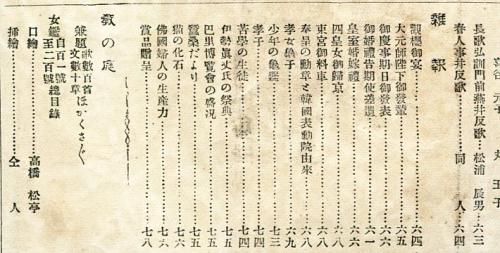 長歌弘訓門前燕井反歌……松浦辰男…六三
春人事井反歌……同人…六四
雜報
觀櫻御宴……六四
大元帥陛下御發輦……六五
御慶事期日御發表……六六
御婚禮告期使差遣……六一
皇室婚嫁禮……六六
四皇女御歸京……六八
東宮御料車……六八
奉呈の勳章と韓國表勳院由來……六八
孝女桑子……六九
少年の龜鑑……七三
孝子……七四
苦學の生徒……七四
伊勢貞丈氏の祭典……七四
巴里博覽會の盛况……七五
蠶桑だより……七五
猫の化石……七六
佛國婦人の生産力……七六
賞品贈呈……七八
教の庭
兼題歌數百首文數十章ほかくさ〲
女鑑自百一號至二百號總目錄
口繪……高橋松亭
挿繪……仝人